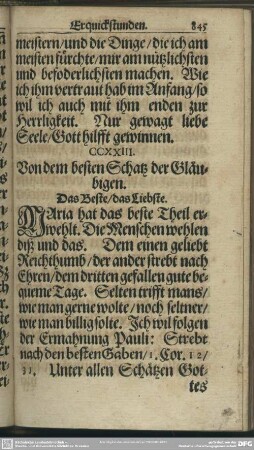 Erquickstunden. 845
meistern/und die Dinge/die ich am
meisten fürchte/mir am nützlichsten
und befoderlichsten machen. Wie
ich ihm vertraut hab im Anfang/so
wil ich auch mit ihm enden zur
Herrligkeit. Nur gewagt liebe
Seele/Gott hilfft gewinnen.
CCXXIII.
Von dem besten Schatz der Gläu-
bigen.
Das Beste/das Liebste.
MAria hat das beste Theil er-
wehlt. Die Menschen wehlen
diß und das. Dem einen geliebt
Reichthumb/der ander strebt nach
Ehren/dem dritten gefallen gute be-
queme Tage. Selten trifft mans/
wie man gerne wolte/noch seltner/
wie man billig solte. Ich wil folgen
der Ermahnung Pauli: Strebt
nach den besten Gaben/1. Cor. 12/
31. Unter allen Schätzen Got-
tes